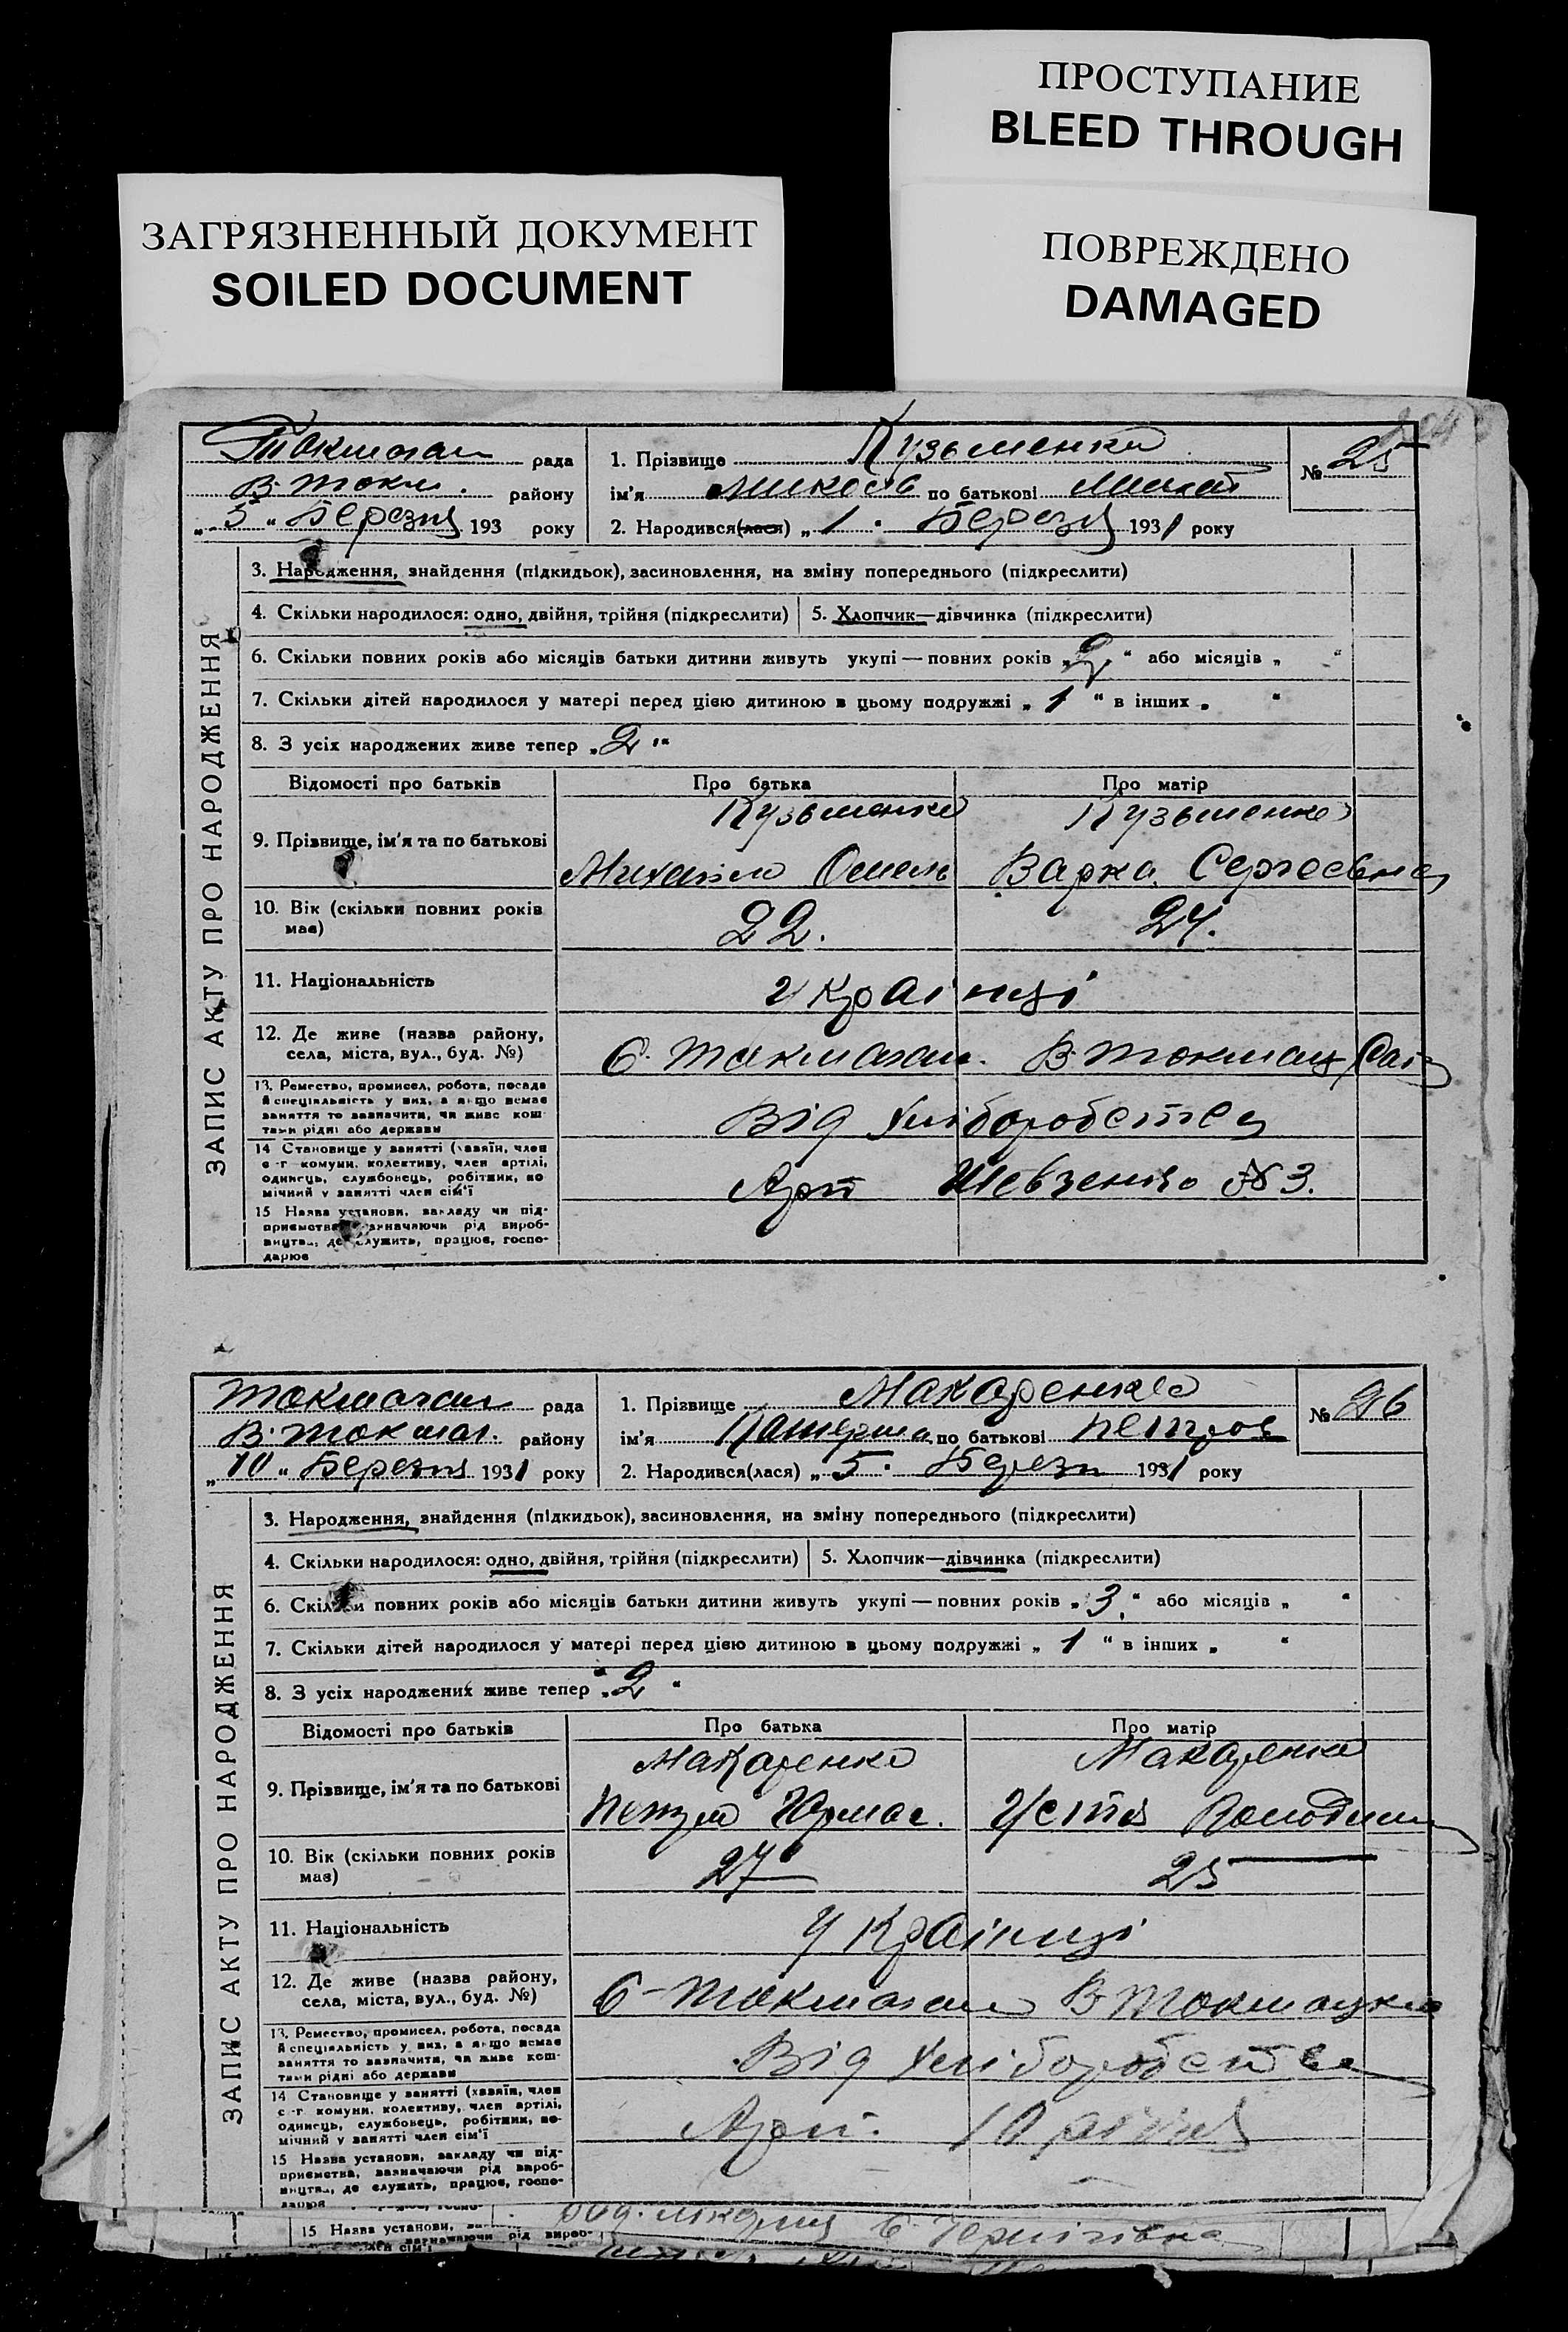 ПРОСТУПАНИЕ
BLEED THROUGH
ЗАГРЯЗНЕННЫЙ ДОКУМЕНТ
SOILED DOCUMENT
ПОВРЕЖДЕНО
DAMAGED
Токмачан рада
В Токм. району
„ 5 “ Березня 193 року
1. Прізвище Кузьменко
ім'я Микола по батькові Михай
2. Народився(лася) „ 1 “ Березня 1931 року
№ 25
ЗАПИС АКТУ ПРО НАРОДЖЕННЯ
3. Народження, знайдення (підкидьок), засиновлення, на зміну попереднього (підкреслити)
4. Скільки народилося: одно, двійня, трійня (підкреслити) 5. Хлопчик—дівчинка (підкреслити)
6. Скільки повних років або місяців батьки дитини живуть укупі — повних років „ 2 “ або місяців „ “
7. Скільки дітей народилося у матері перед цією дитиною в цьому подружжі „ 1 “ в інших „ “
8. З усіх народжених живе тепер „ 2 “
Відомості про батьків Про батька Про матір
Кузьменко Кузьменко
9. Прізвище, ім'я та по батькові
Михайло Омель Варка Сергеевна
10. Вік (скільки повних років має) 22. 24.
11. Національність українці
12. Де живе (назва району, села, міста, вул., буд. №) С. Токмачан. В Токмац
13. Ремество, промисел, робота, посада й спеціяльність у них, а якщо немає заняття то зазначити, чи живе коштами рідні або держави
Від хліборобства
14 Становище у занятті (хазяїн, член с-г комуни, колективу, член артілі, одинець, службовець, робітник, помічний у занятті член сім'ї
Арт Шевченко № 3.
15 Назва установи, закладу чи підприємства, зазначаючи рід виробництва, де служить, працює, господарює
Токмачан рада
В. Токмац. району
„ 10 “ Березня 1931 року
1. Прізвище Макаренко
ім'я Катерина по батькові Петров
2. Народився(лася) „ 5 “ Березн 1931 року
№ 26
ЗАПИС АКТУ ПРО НАРОДЖЕННЯ
3. Народження, знайдення (підкидьок), засиновлення, на зміну попереднього (підкреслити)
4. Скільки народилося: одно, двійня, трійня (підкреслити) 5. Хлопчик—дівчинка (підкреслити)
6. Скільки повних років або місяців батьки дитини живуть укупі — повних років „ 3 “ або місяців „ “
7. Скільки дітей народилося у матері перед цією дитиною в цьому подружжі „ 1 “ в інших „ “
8. З усіх народжених живе тепер „ 2 “
Відомості про батьків Про батька Про матір
Макаренко Макаренко
9. Прізвище, ім'я та по батькові
Петро Устя
10. Вік (скільки повних років має) 27 25
11. Національність українці
12. Де живе (назва району, села, міста, вул., буд. №) С-Токмачан В Токмацьк
13. Ремество, промисел, робота, посада й спеціяльність у них, а якщо немає заняття то зазначити, чи живе коштами рідні або держави
Від хліборобства
14 Становище у занятті (хазяїн, член с-г комуни, колективу, член артілі, одинець, службовець, робітник, помічний у занятті член сім'ї
Арт. 10 річчя
15 Назва установи, закладу чи підприємства, зазначаючи рід виробництва, де служить, працює, господарює
15 Назва установи,
С. Чернігівка